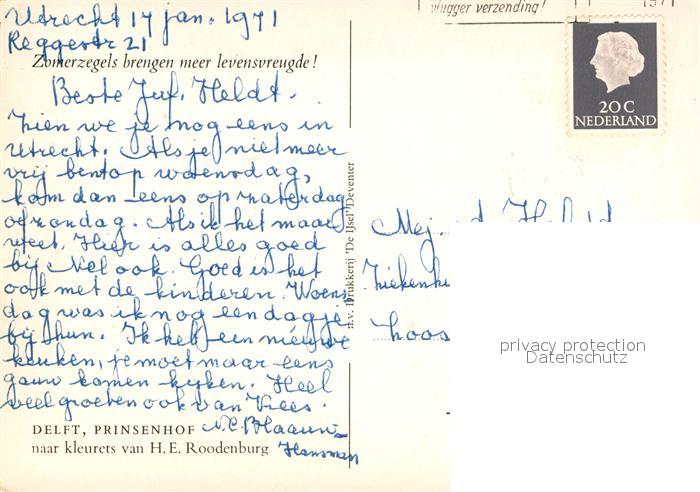 Utrecht 17 jan. 1971
Reggestr 21
Zomerzegels brengen meer levensvreugde!
Beste Juf. Heldt.
Zien we je nog eens in
Utrecht. Als je niet meer
vrij bent op woensdag,
kom dan eens op zaterdag
of zondag. Als ik het maar
weet. Hier is alles goed
bij Nel ook. Goed is het
ook met de kinderen. Woens
dag was ik nog een dagje
bij hun. Ik heb een nieuwe
keuken, je moet maar eens
gauw komen kijken. Heel
veel groeten ook van Kees.
N.C. Blaauw-
Hansman
DELFT, PRINSENHOF
naar kleurets van H. E. Roodenburg
n.v. Drukkerij 'De IJsel' Deventer
vlugger verzending!
1971
20 C
NEDERLAND
Mej.
Ziekenhu
Loos
privacy protection
Datenschutz